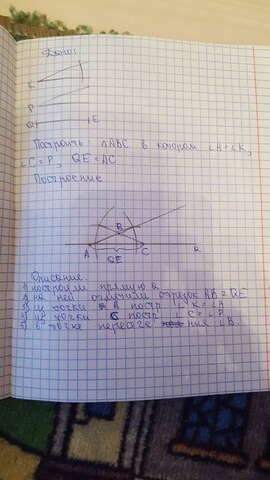 Дано:
K
P
Q E
Построить: △ABC в котором ∠A=∠K,
∠C=P, QE=AC
Построение
B
A C a
QE
Описание
1) построим прямую a
2) на ней отметим отрезок AB=QE
3) из точки A постр ∠K=∠A
4) из точки C постр ∠C=∠P
5) в точке пересе ния ∠B.